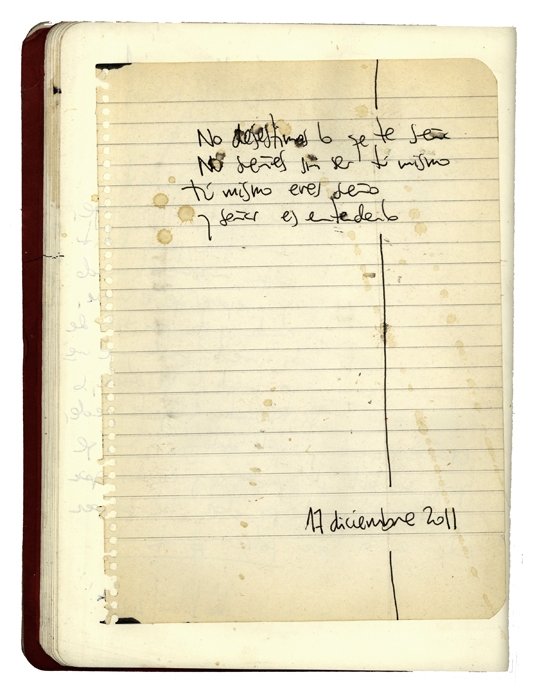 No desestimes lo qe te seña
No señes sin ser tú mismo
tú mismo eres seño
y señar es entenderlo
17 diciembre 2011